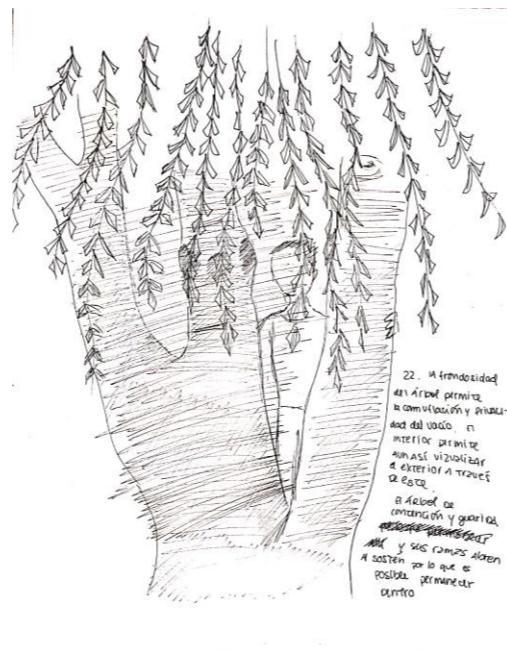 22. la frondosidad
del árbol permite
la camuflación y privaci-
dad del vacío. El
interior permite
aun así vizualizar
el exterior a través
de este.
El árbol da
contención y guarida
y sus ramas abren
el sostén por lo que es
posible permanecer
dentro